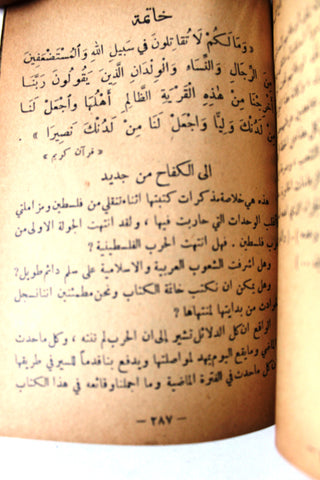 خاتمة
« وَمَا لَكُمْ لَا تُقَاتِلُونَ فِي سَبِيلِ اللهِ وَالْمُسْتَضْعَفِينَ
مِنَ الرِّجَالِ وَالنِّسَاءِ وَالْوِلْدَانِ الَّذِينَ يَقُولُونَ رَبَّنَا
أَخْرِجْنَا مِنْ هٰذِهِ الْقَرْيَةِ الظَّالِمِ أَهْلُهَا وَاجْعَلْ لَنَا
مِنْ لَدُنْكَ وَلِيًّا وَاجْعَلْ لَنَا مِنْ لَدُنْكَ نَصِيرًا » .
« قرآن كريم »
الى الكفاح من جديد
هذه هي خلاصة مذكرات كتبتها اثناء تنقلي من فلسطين ومزاملتي
الوحدات التي حاربت فيها ، ولقد انتهت الجولة الاولى من
حرب فلسطين . فهل انتهت الحرب الفلسطينية ؟
وهل اشرفت الشعوب العربية والاسلامية على سلم دائم طويل ؟
وهل يمكن ان نكتب خاتمة الكتاب ونحن مطمئنين اننا نسجل
الحوادث من بدايتها لمنتهاها ؟
الواقع ان كل الدلائل تشير إلى ان الحرب لم تنته ، وكل ما حدث
في الماضي وما يقع اليوم يمهد لمواصلتها ويدفع بنا قدماً للسير في طريقها
ان كل ما حدث في الفترة الماضية وما اجملنا وقائعه في هذا الكتاب
— ٢٨٧ —